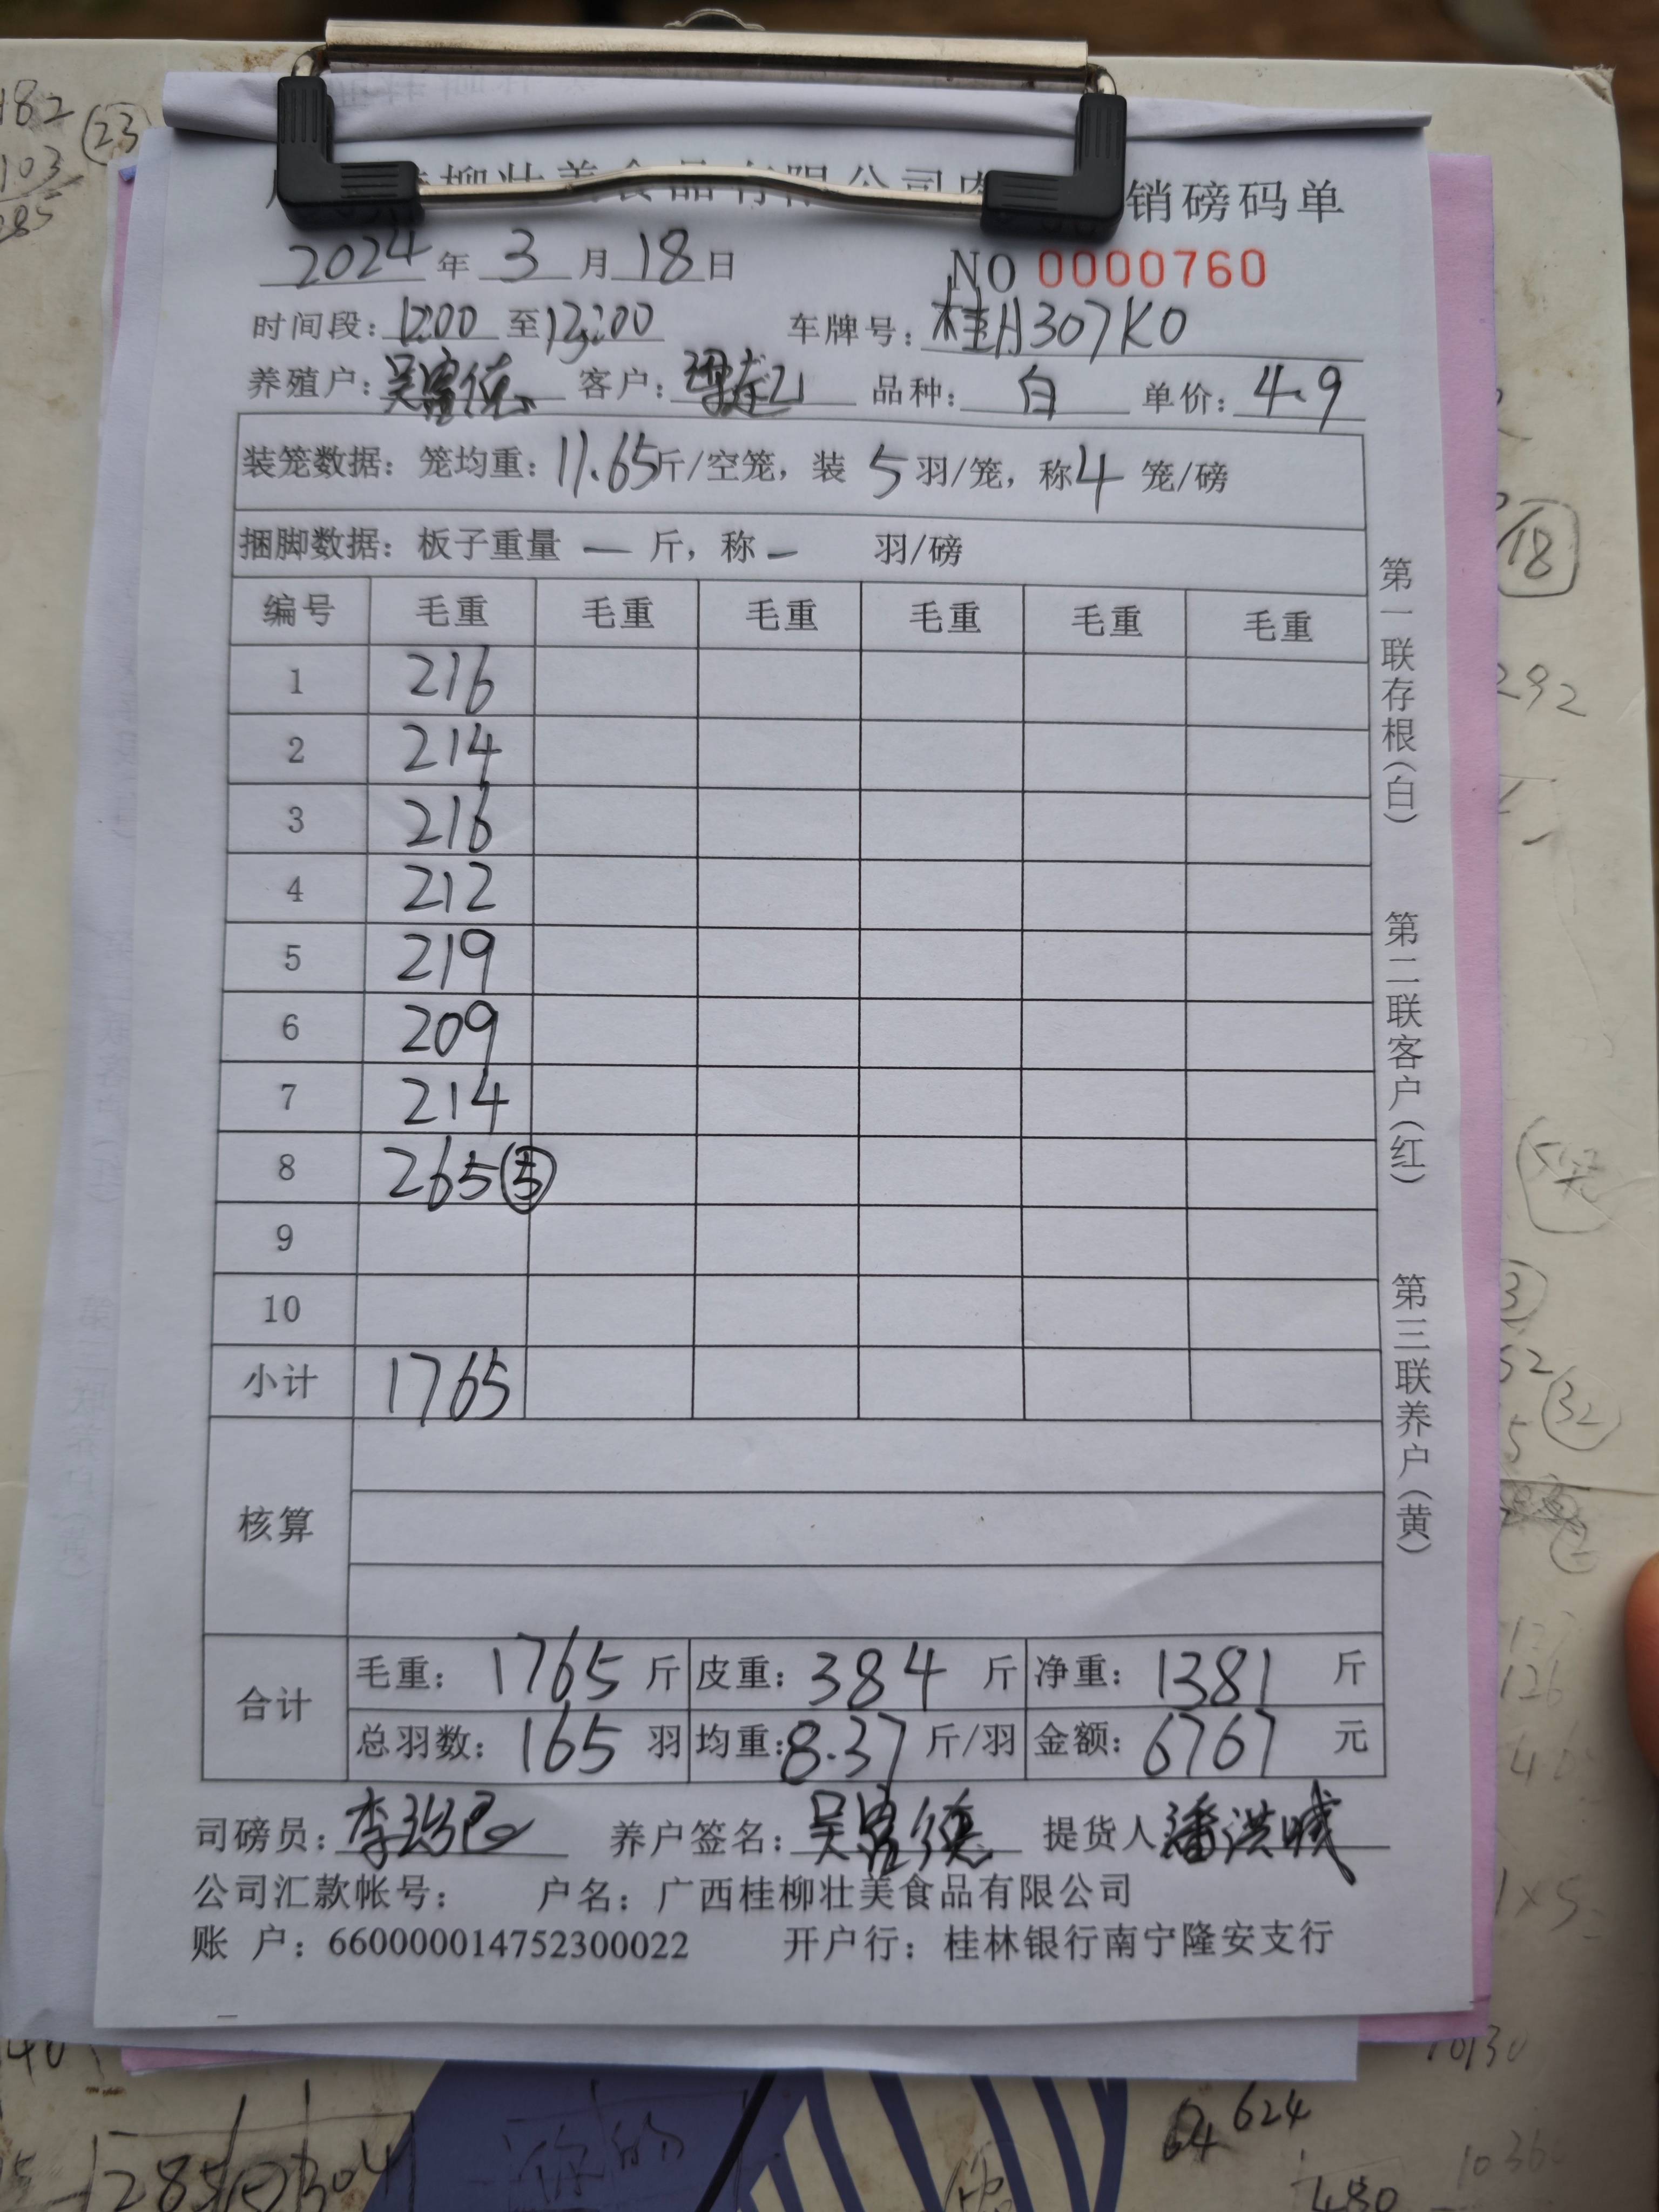 柳壮美食品有限公司 销磅码单
2024年3月18日 NO 0000760
时间段：12:00至13:00 车牌号：桂A307K0
养殖户：吴富德 客户： 品种：白 单价：4.9
装笼数据：笼均重：11.65斤/空笼，装 5 羽/笼，称4 笼/磅
捆脚数据：板子重量 — 斤，称 — 羽/磅
编号 毛重 毛重 毛重 毛重 毛重 毛重
1 216
2 214
3 216
4 212
5 219
6 209
7 214
8 265 ⑤
9
10
小计 1765
核算
合计 毛重：1765斤 皮重：384斤 净重：1381斤
总羽数：165羽 均重：8.37斤/羽 金额：6767元
司磅员：李 养户签名：吴富德 提货人 潘洪
公司汇款帐号： 户名：广西桂柳壮美食品有限公司
账 户：660000014752300022 开户行：桂林银行南宁隆安支行
第一联存根（白）
第二联客户（红）
第三联养户（黄）
182
23
103
285
18
292
3
32
126
1×5
624
480